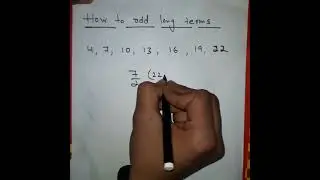 How to add long terms
4, 7, 10, 13, 16, 19, 22
7/2 (22